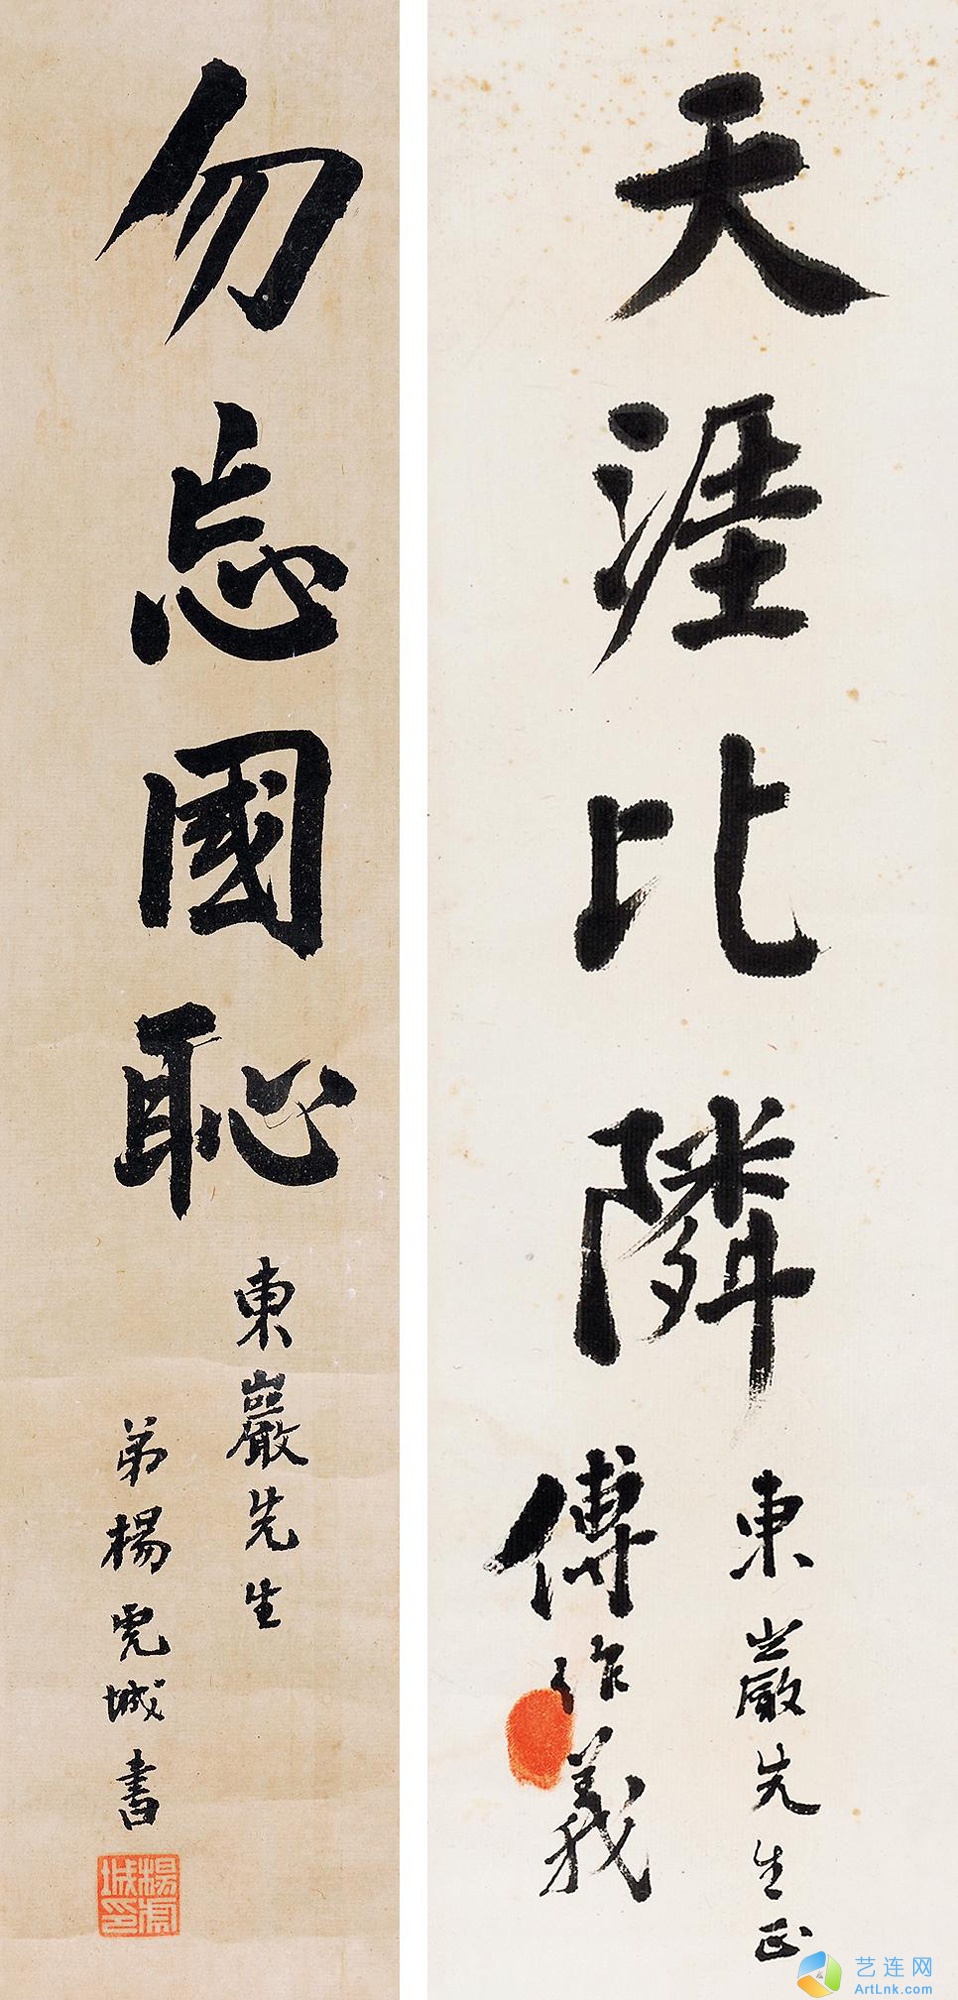 天涯比隣
東巖先生正
傅作義
勿忘國恥
東巖先生
弟楊虎城書
楊虎城印
艺连网
ArtLnk.com